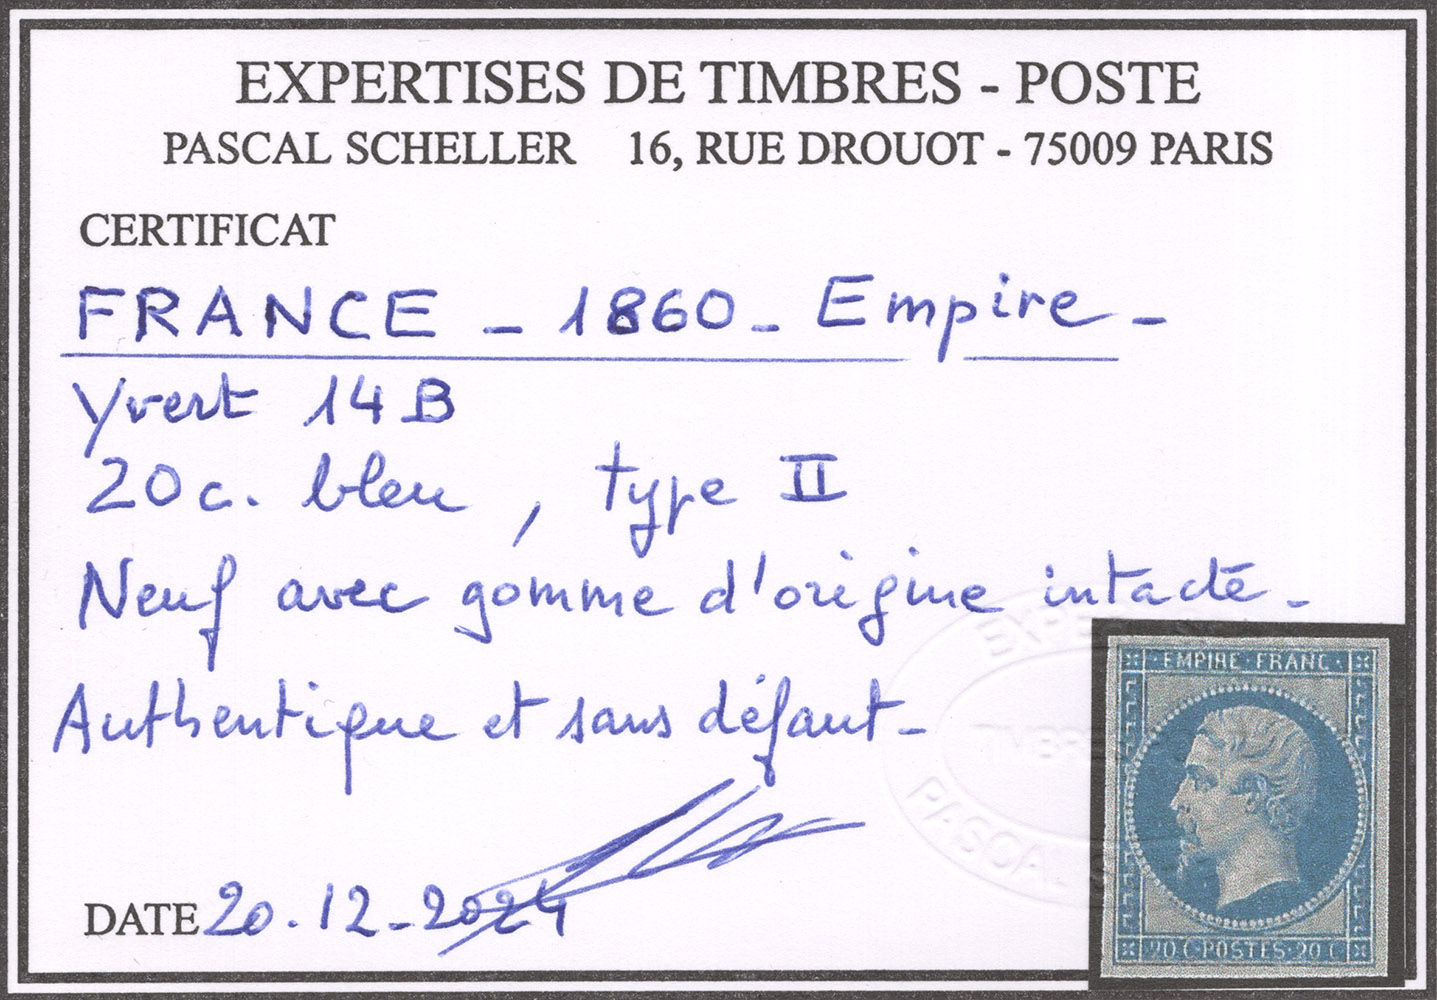 EXPERTISES DE TIMBRES - POSTE
PASCAL SCHELLER 16, RUE DROUOT - 75009 PARIS
CERTIFICAT
FRANCE - 1860 - Empire -
Yvert 14 B
20 c. bleu, type II
Neuf avec gomme d'origine intacte -
Authentique et sans défaut -
DATE 20.12-2024
EMPIRE FRANC
20 C·POSTES·20 C
EXPE
TIMBRE
PASCAL S